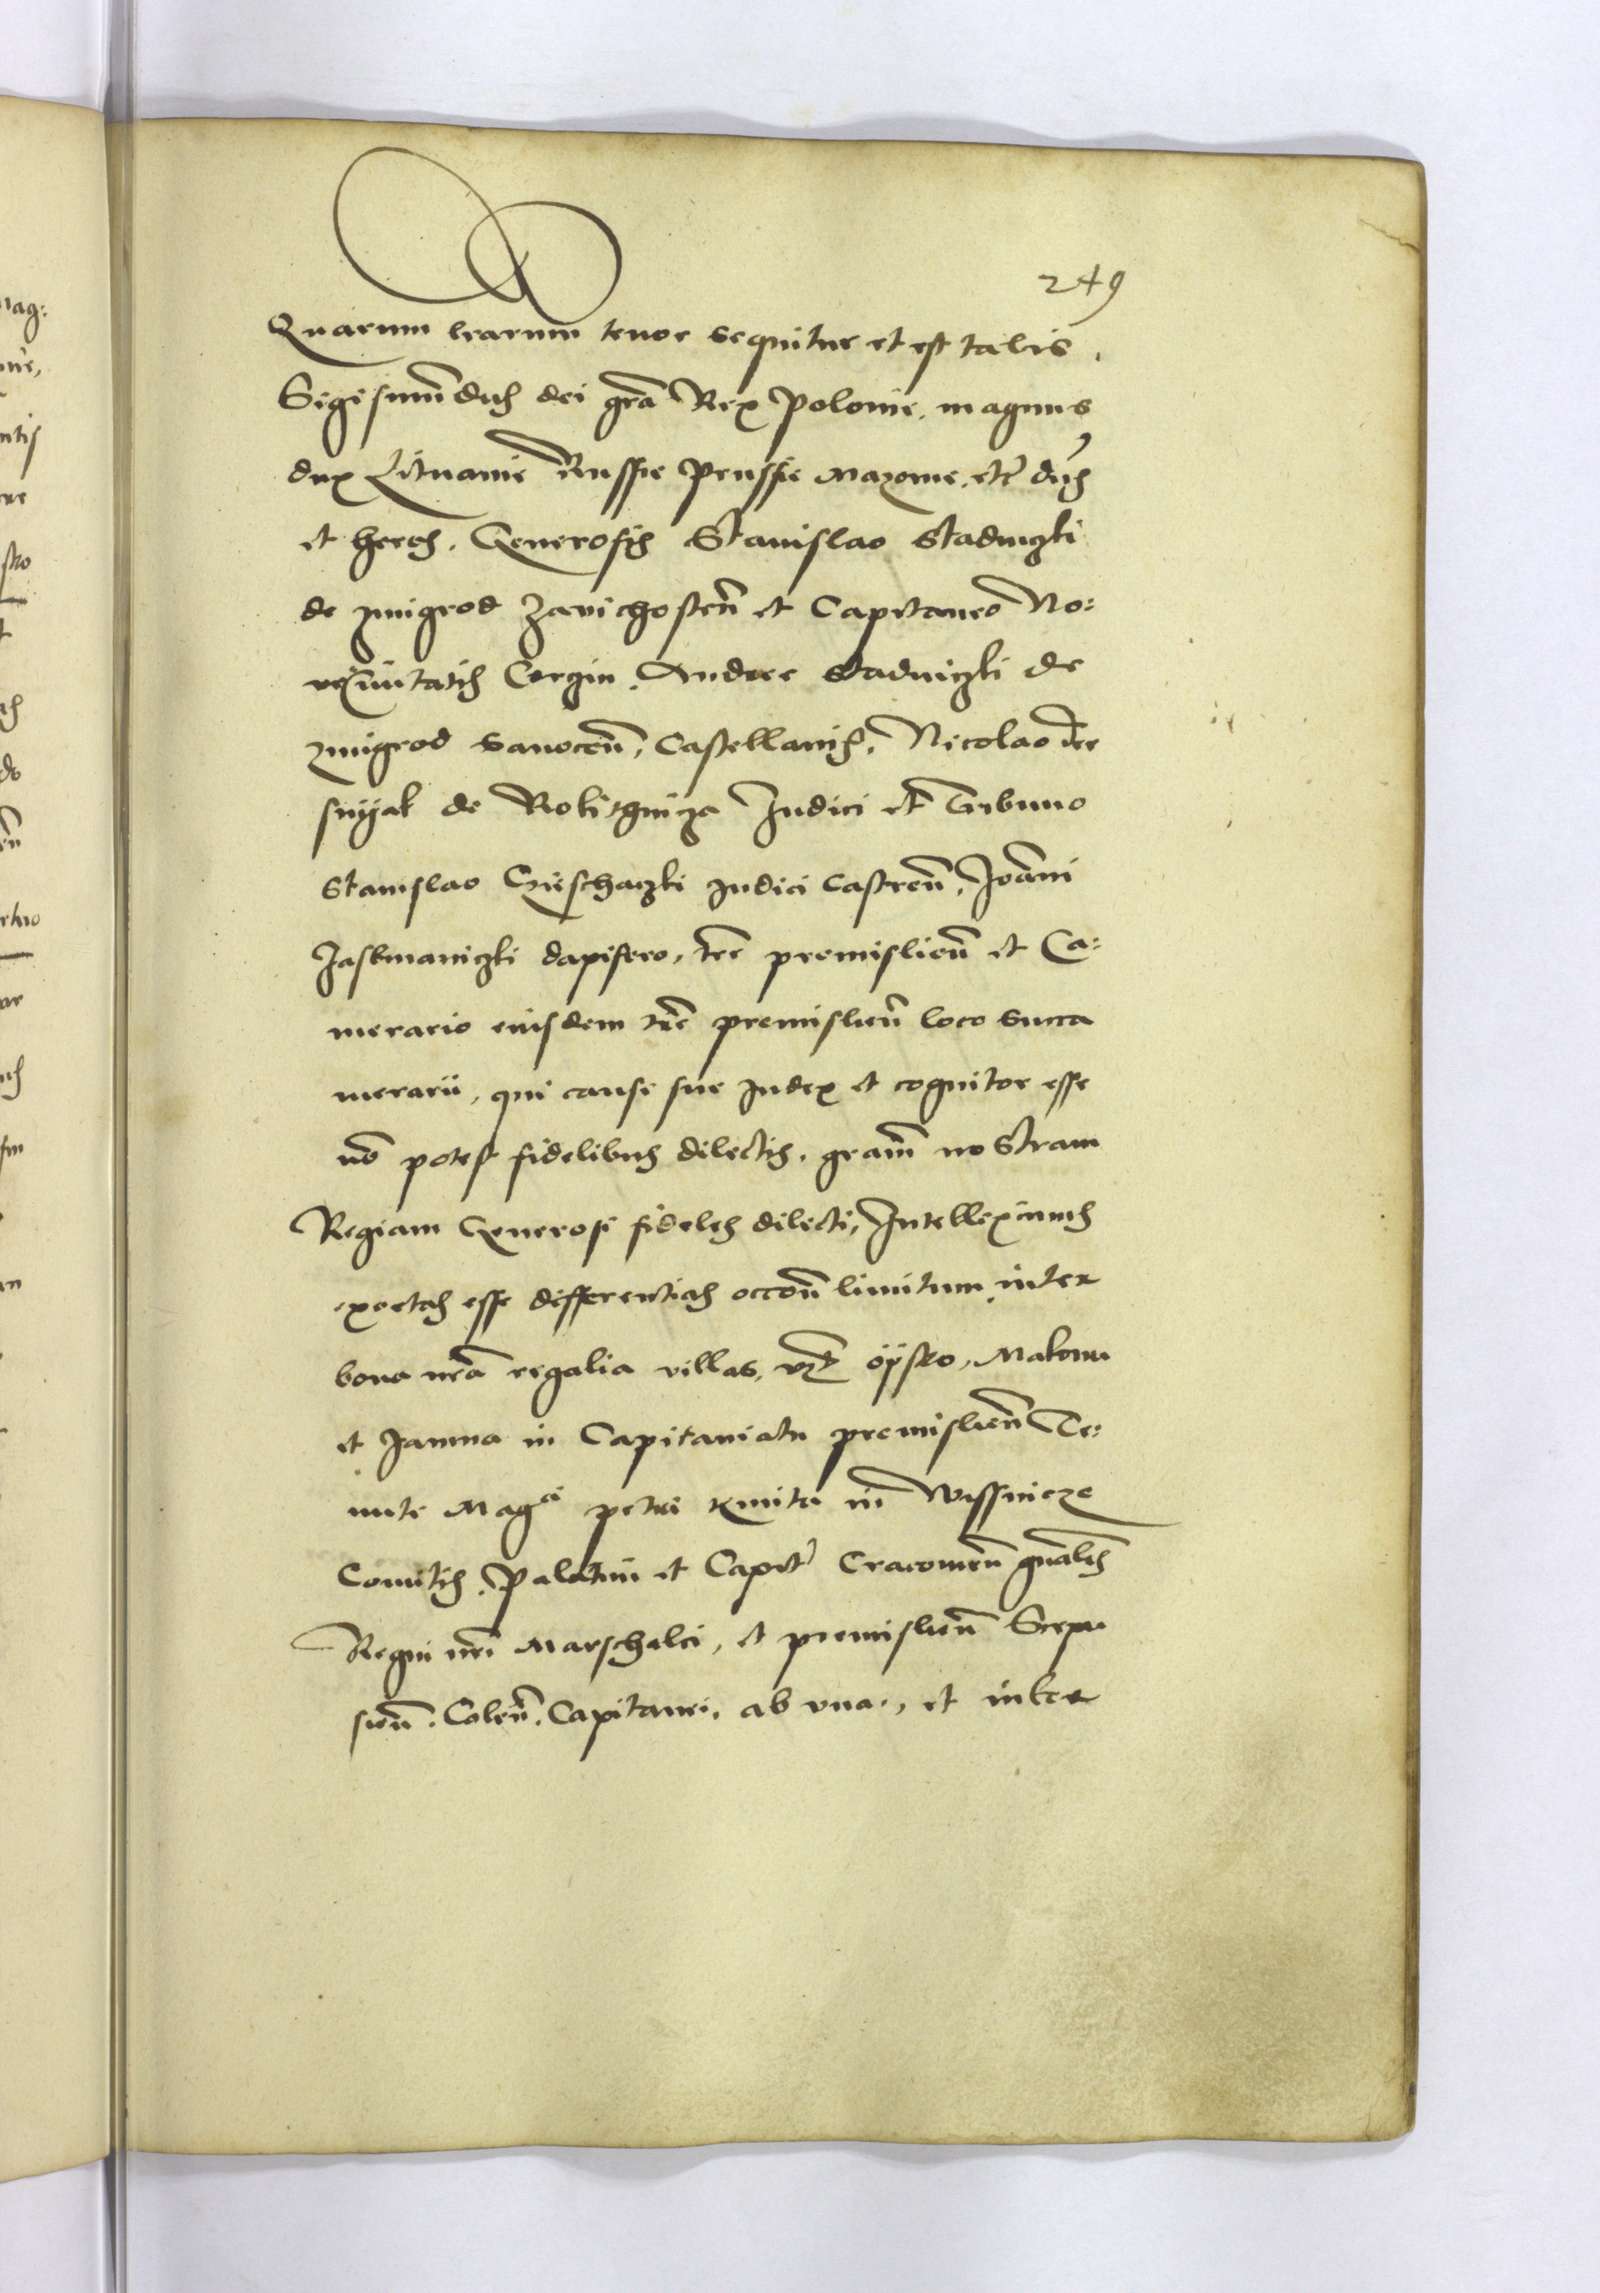 249
Quarum lrarum tenor sequitur et est talis.
Sigismundus dei gra Rex Polonie, magnus
dux Lituanie Russie Prussie Mazouie, etc dns
et heres. Generosis Stanislao Stadniczki
de zmigrod Zawichosten et Capitaneo No:
Corzin. Andree Stadniczki de
zmigrod Sanocen, Castellanis, Nicolao
de Rokithnicza Iudici et Tribuno
Stanislao Iudici Castren, Ioanni
Jaskmaniczki dapifero, tre premislien et Ca:
merario eiusdem tre premislien loco succa
merarii, qui cause sue Iudex et cognitor esse
no potest fidelibus dilectis. gram nostram
Regiam Generosi fideles dilecti, Intelleximus
exortas esse differentias occone limitum inter
bona nra regalia villas, Makowa
et Jamna in Capitaniatu premislien Te:
nute Mag petri kmita in Wissnicze
Comitis, Palatini et Capit Cracouien gnalis
Regni nri Marschalci, et premislien Scepu
sien. Colen. Capitanei, ab vna, et inter